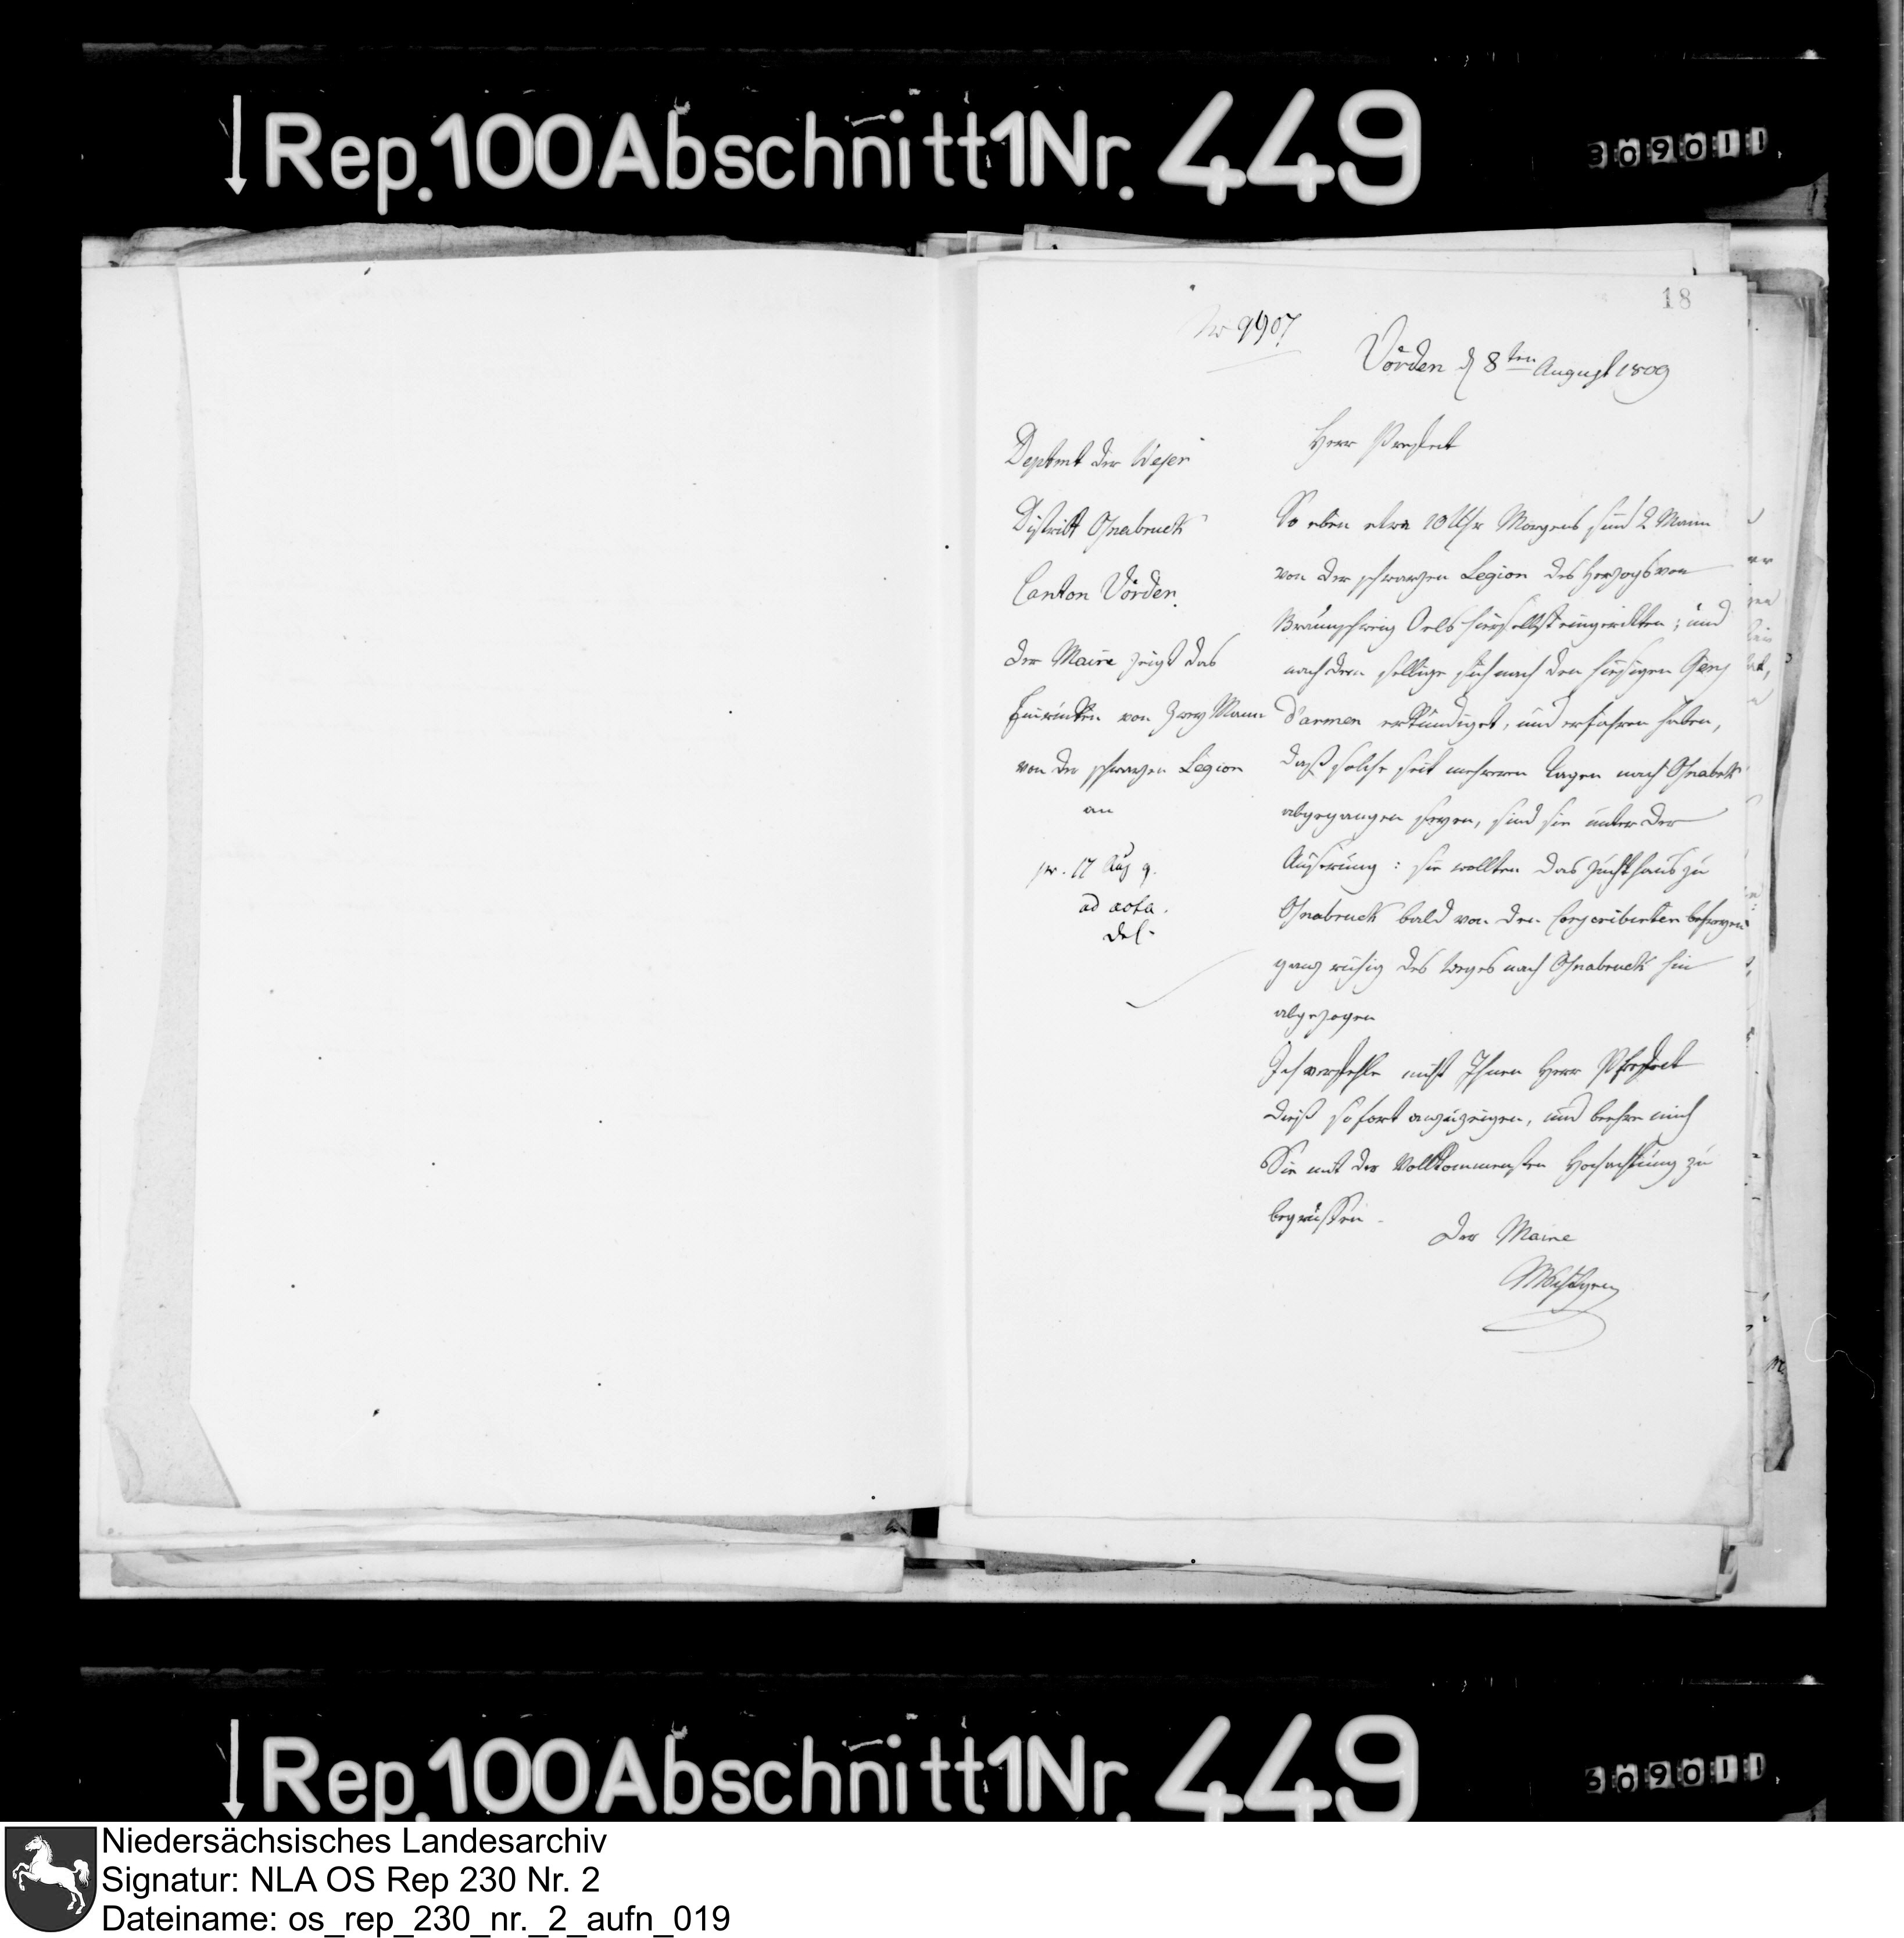 Rep. 100 Abschnitt 1 Nr. 449
309011
18
No 9907
Vörden d 8ten August 1809
Deptmt der Weser
District Osnabruck
Canton Vörden.
der Maire zeigt das
Einrücken von zwey Mann
von der schwarzen Legion
an
pr. 17 Aug 9.
ad acta.
Herr Prefect
So eben etwa 10 Uhr Morgens sind 2 Mann
von der schwarzen Legion des Herzogs von
Braunschweig Oels hierselbst eingerückten; und
nachdem selbige sich nach den hiesigen Gens
d'armen erkundiget, und erfahren haben,
daß solche seit mehreren Tagen nach Osnabrk
abgegangen seyen, sind sie unter der
Äusserung: sie wollten das Zuchthaus zu
Osnabruck bald von den Conscribirten befreyen
ganz ruhig des Weges nach Osnabruck hin
abgezogen
Ich verfehle nicht Ihnen Herr Prefect
dieß sofort anzuzeigen, und beehre mich
Sie mit der Vollkommensten Hochachtung zu
begrüssen.
Der Maire
Rep. 100 Abschnitt 1 Nr. 449
309011
Niedersächsisches Landesarchiv
Signatur: NLA OS Rep 230 Nr. 2
Dateiname: os_rep_230_nr._2_aufn_019